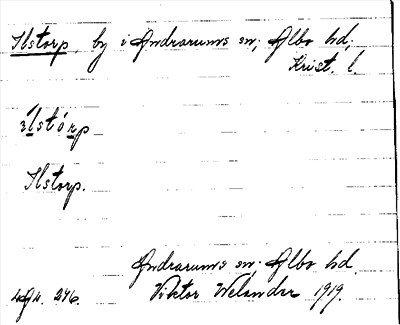 Ilstorp, by i Andrarums sn, Albo hd,
Krist. l.
Ilstorp.
Andrarums sn, Albo hd
246. Viktor Welander 1919.